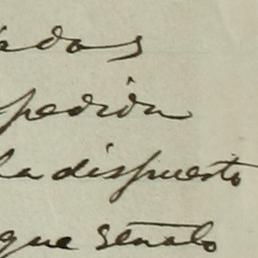 pedida
la dispuesto
que señalo